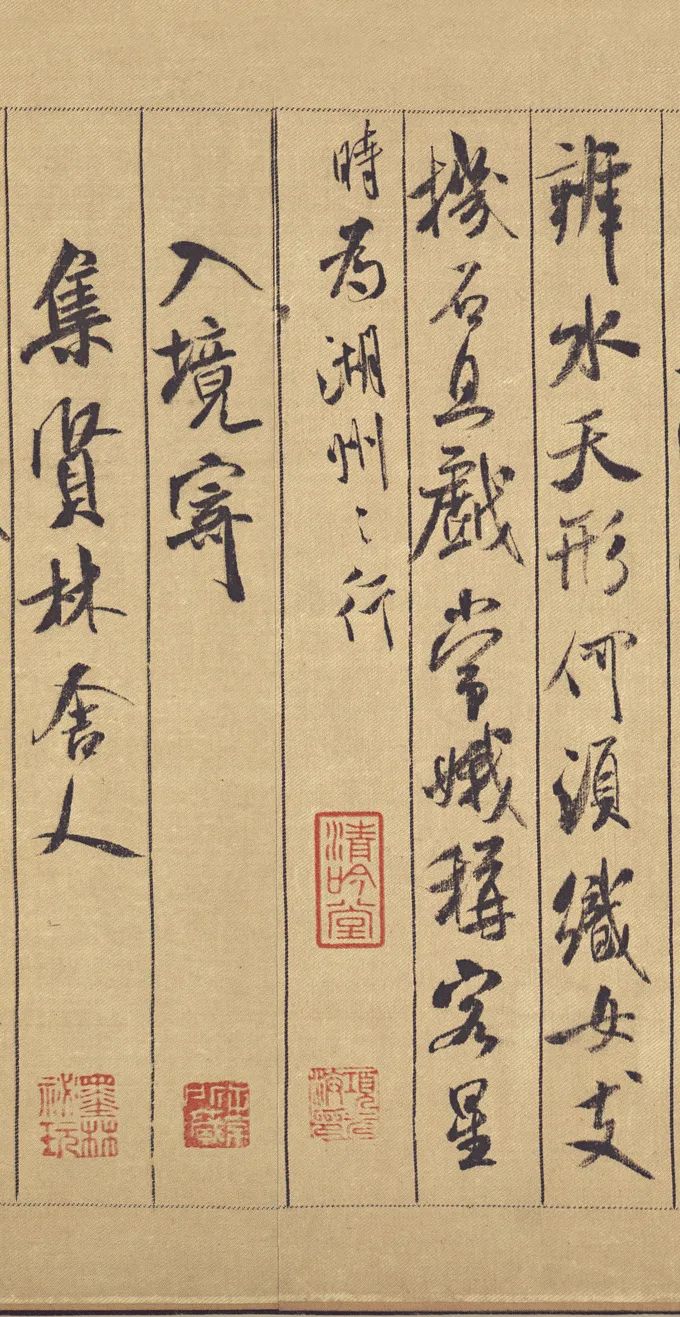 辨水天形何須織女支
機石且戲常娥稱客星
時為湖州之行
入境寄
集賢林舍人
清吟堂
墨林祕玩